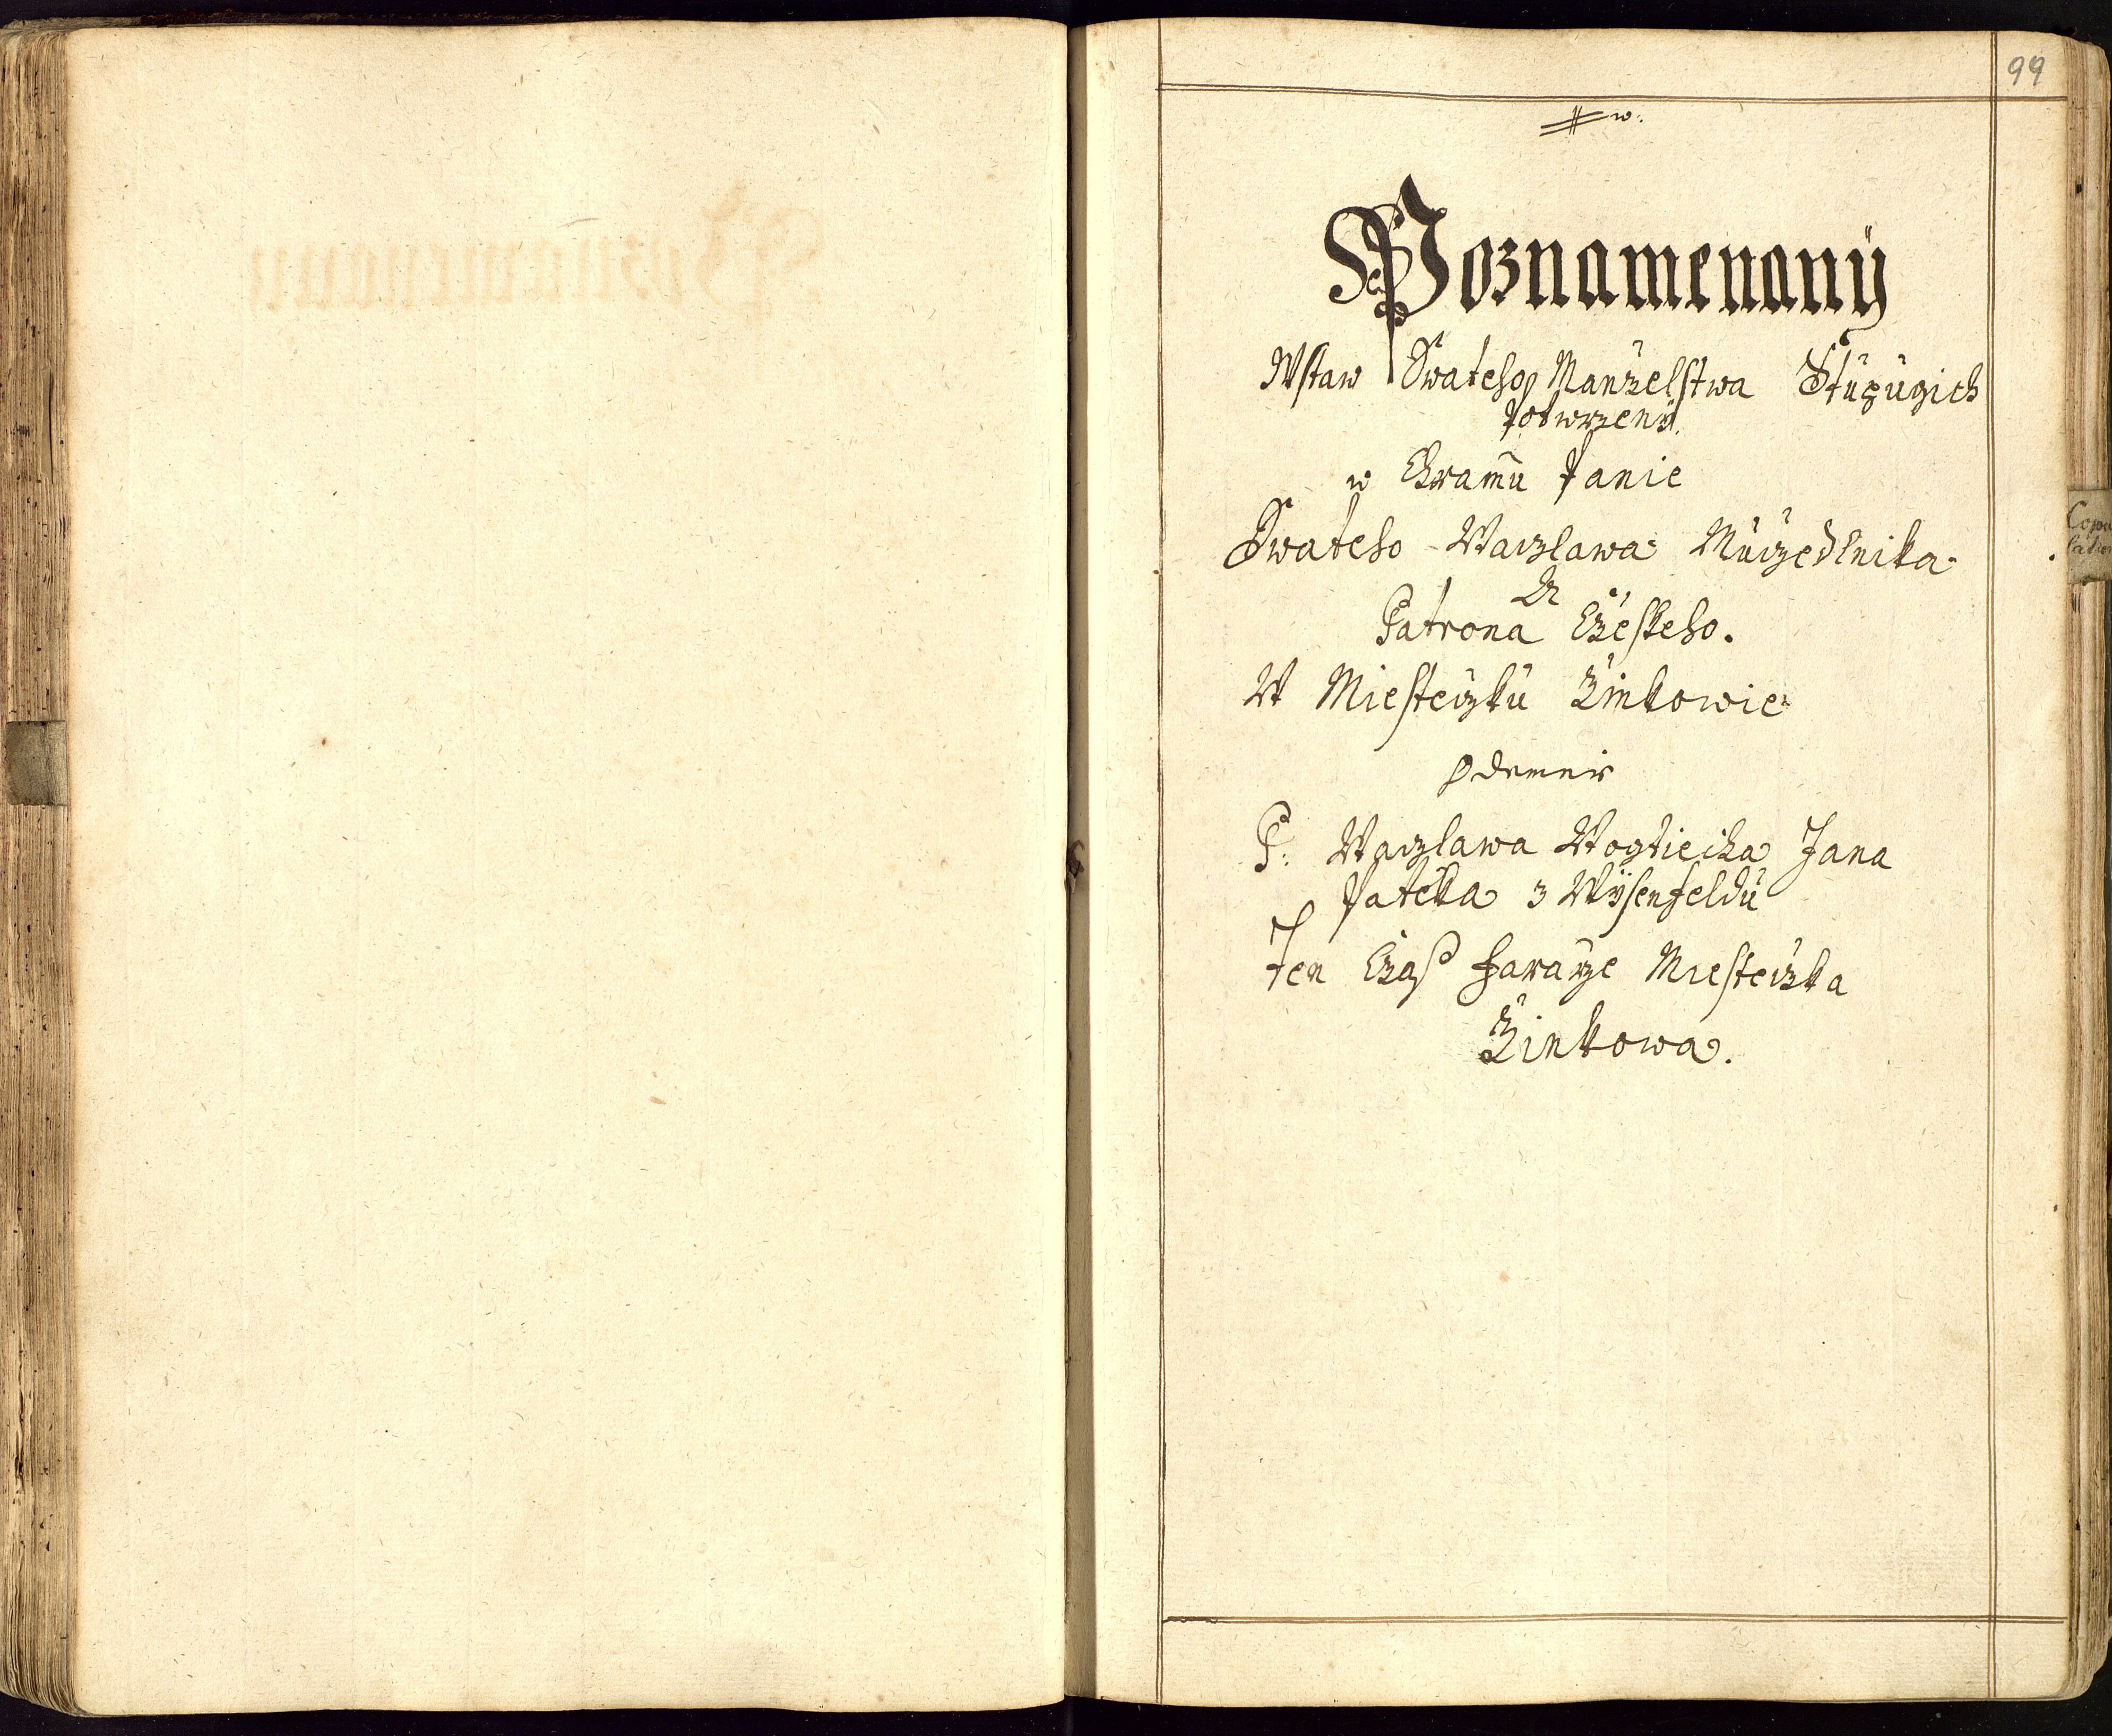 99
Poznamenanÿ
Wstaw Swateho Manželstwa Stupugich
Potwrzenÿ.
w Chramu Panie
Swateho Waczlawa Mučzedlnika
A
Patrona Cžeskeho.
W Miestečzku Žinkowie
odemnie
P: Waczlawa Wogtiecha Jana
Pateka z Weysenfeldu
Ten Cžas Fararže Miestečzka
Žinkowa.
Copu
latio